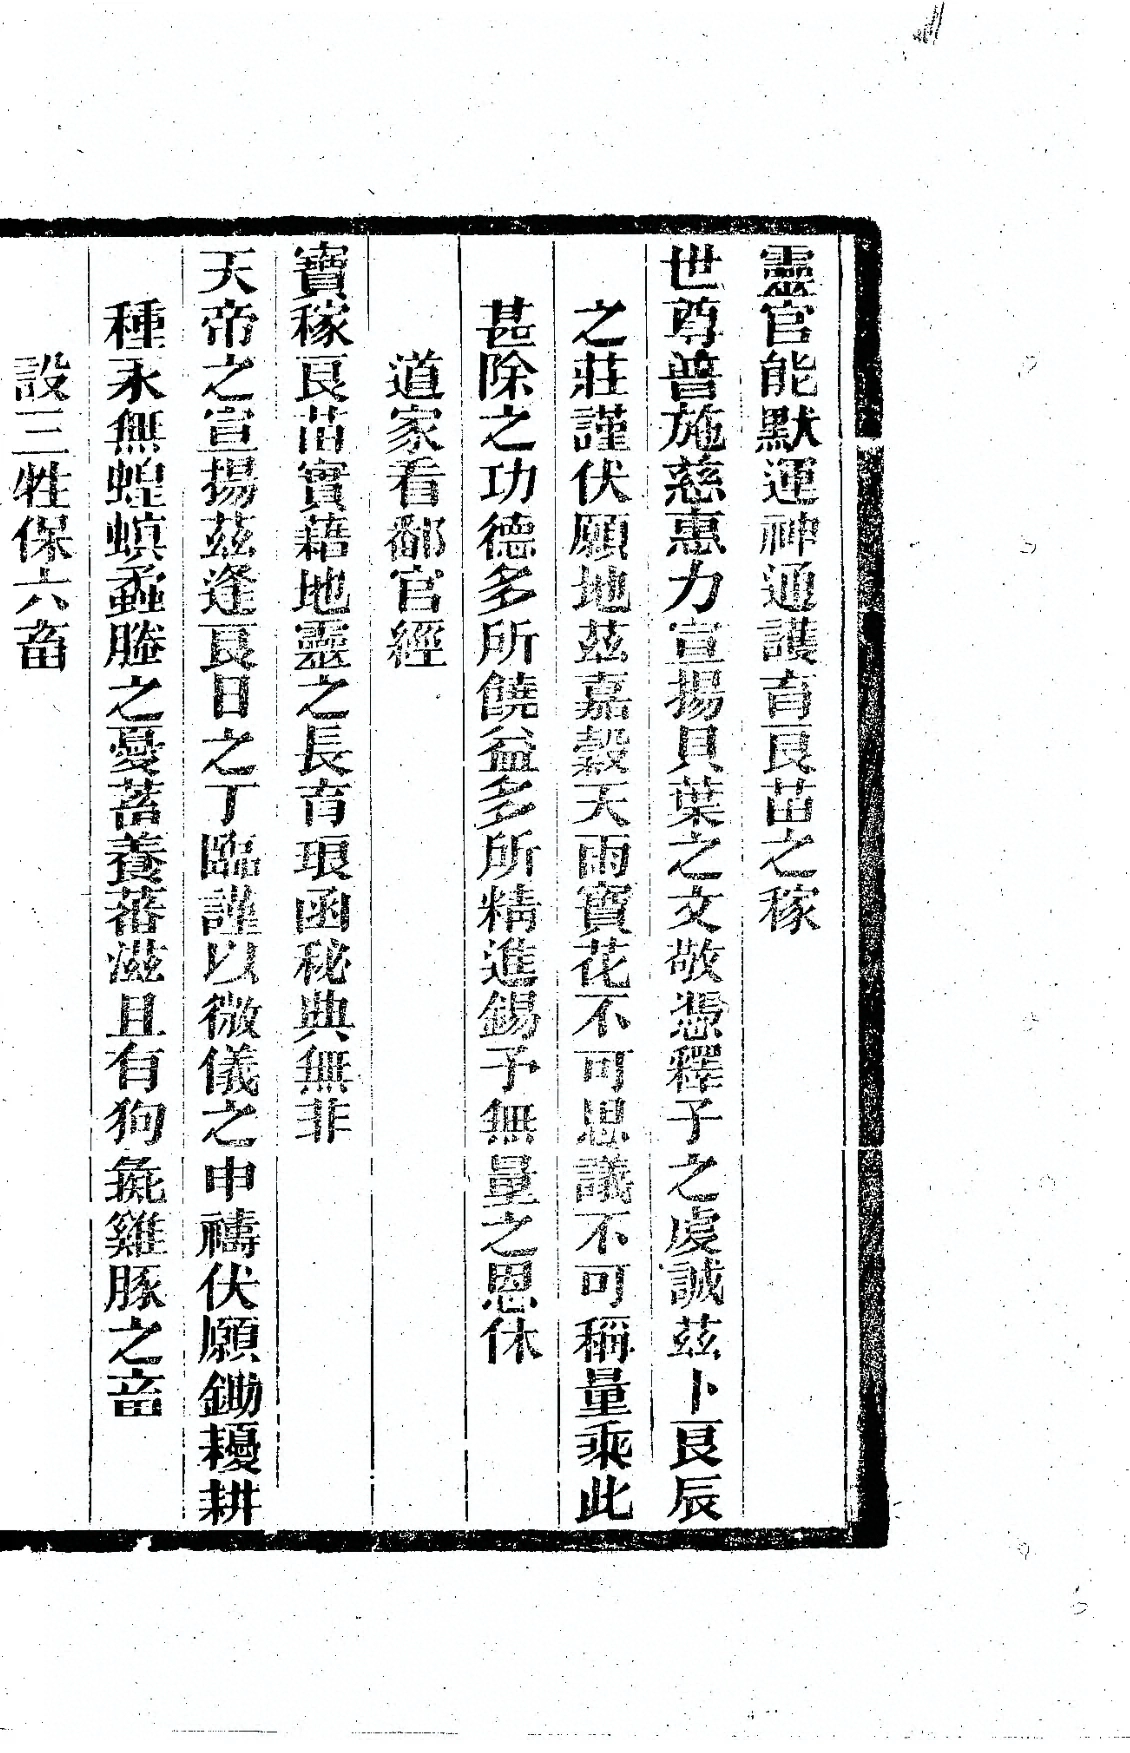 靈官能默運神通護育良苗之稼
世尊普施慈惠力宣揚貝葉之文敬憑釋子之虔誠茲卜良辰
之莊謹伏願地茲嘉穀天雨寶花不可思議不可稱量乘此
甚除之功德多所饒益多所精進錫予無量之恩休
道家看鄱官經
寶稼良苗實藉地靈之長育琅函秘典無非
天帝之宣揚茲逢良日之丁臨謹以微儀之申禱伏願鋤耰耕
種永無蝗螟蝥塍之憂蓄養蕃滋且有狗彘雞豚之畜
設三牲保六畜